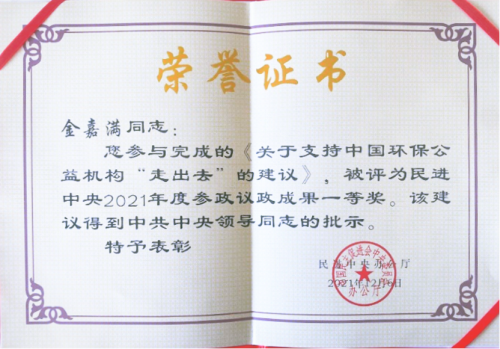 荣誉证书
金嘉满同志：
您参与完成的《关于支持中国环保公
益机构“走出去”的建议》，被评为民进
中央2021年度参政议政成果一等奖。该建
议得到中共中央领导同志的批示。
特予表彰
民进中央办公厅
2021年12月6日
办公厅